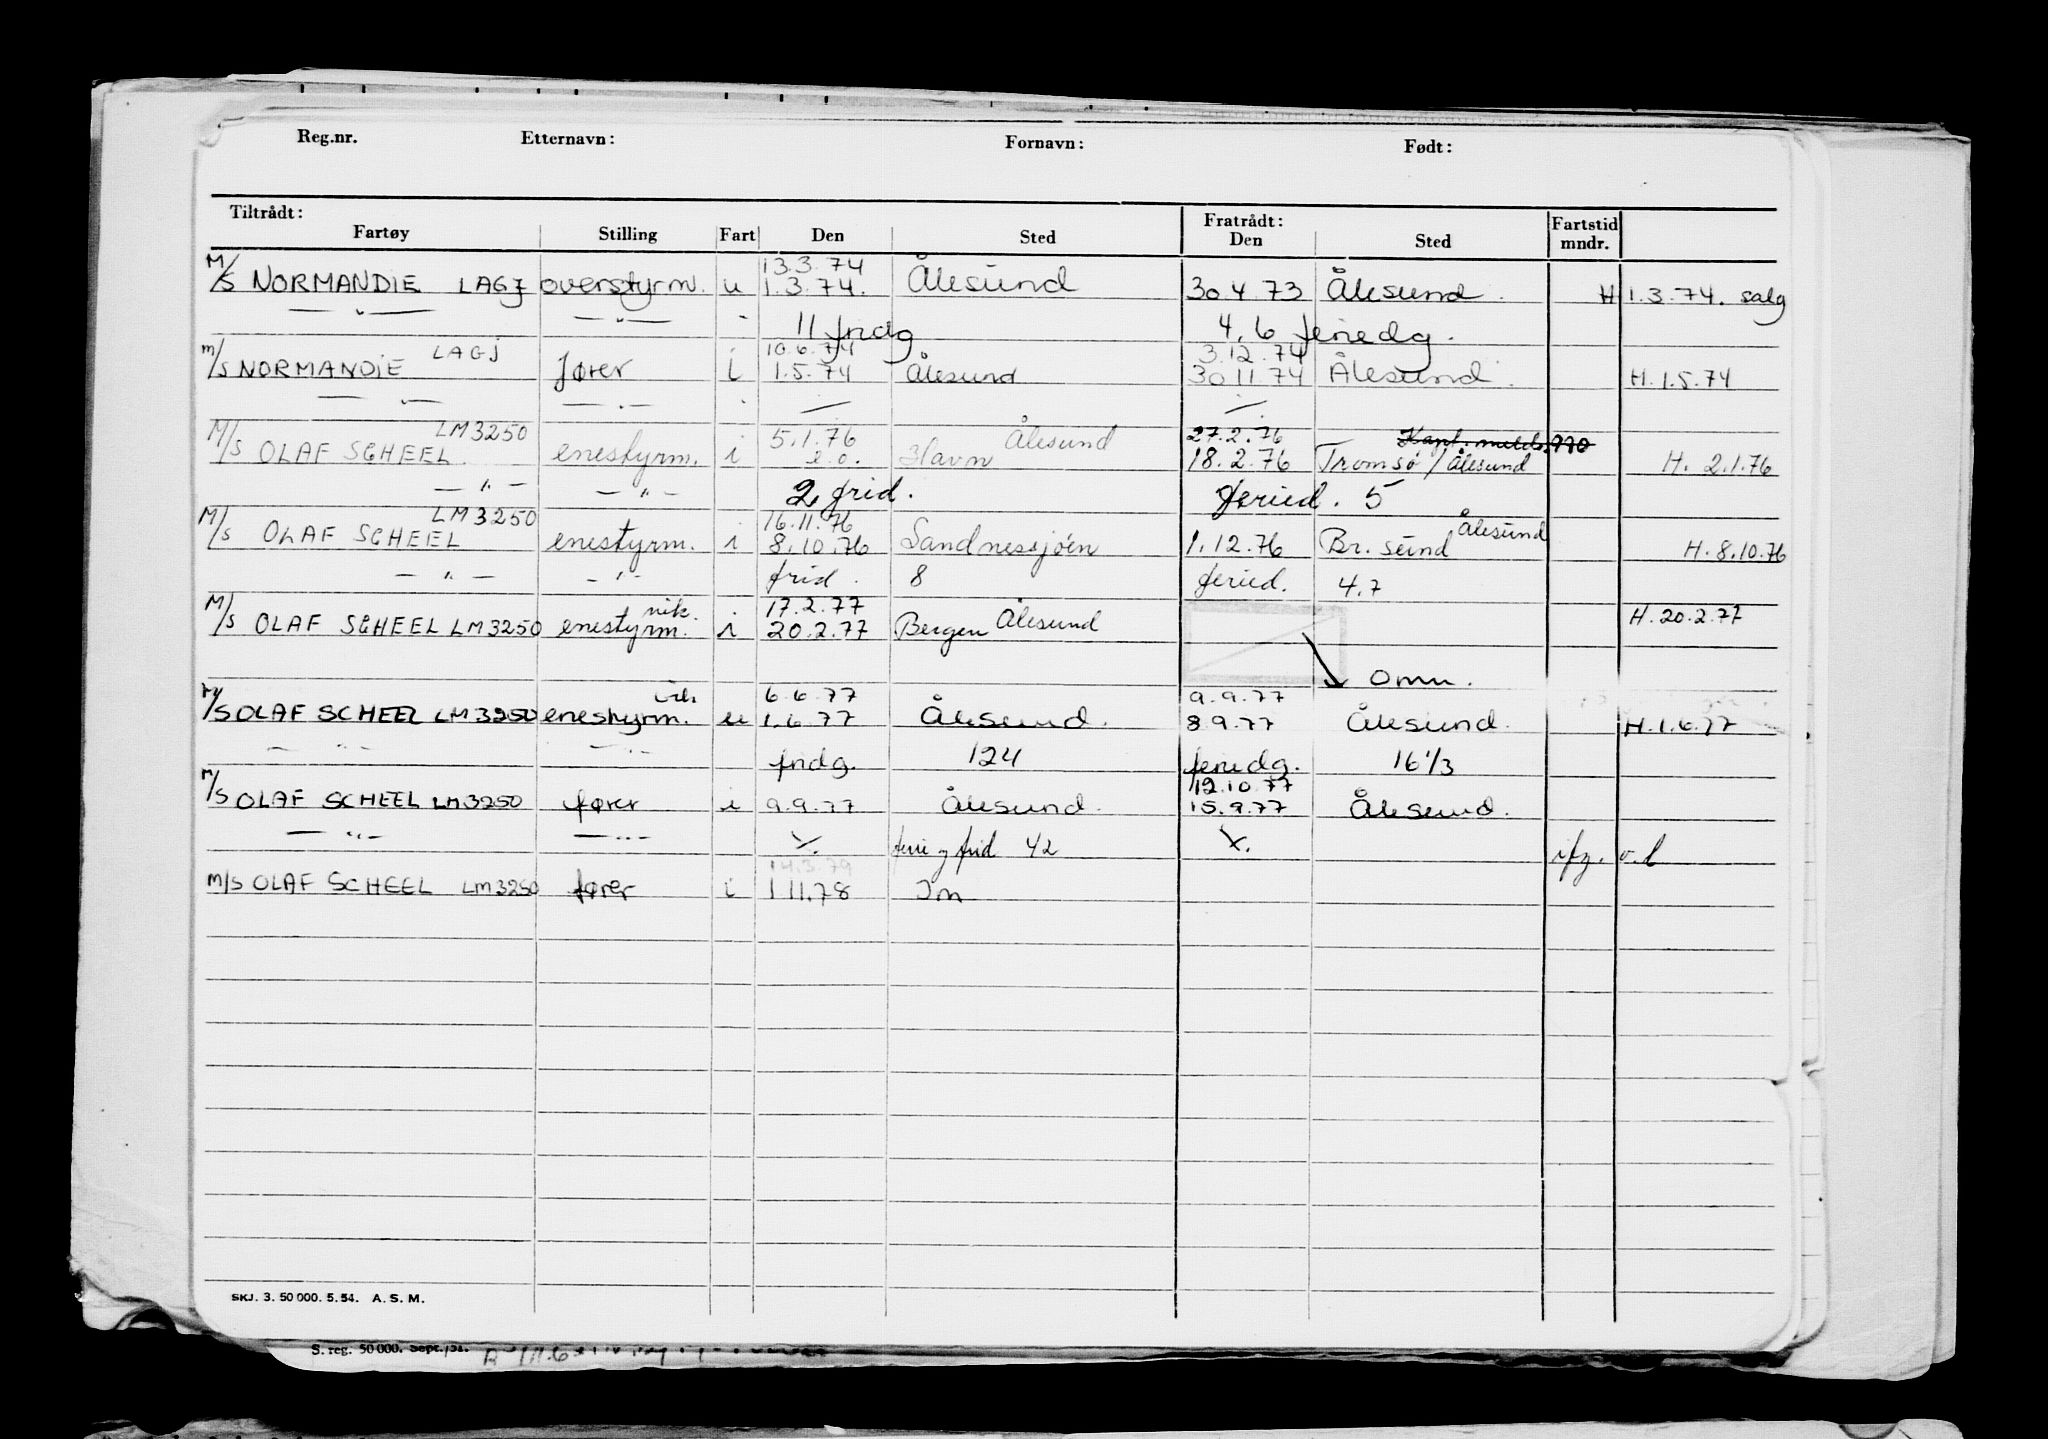 Reg.nr. Etternavn: Fornavn: Født:
Tiltrådt: Fratrådt: Fartstid
Fartøy Stilling Fart Den Sted Den Sted mndr.
13.3.74
M/S NORMANDIE LAGJ overstyrm. u 1.3.74. Ålesund 30.4.73 Ålesund. H 1.3.74. salg
— " — — " — - 11 fridg 4,6 feriedg.
LAGJ 10.6.74 3.12.74
M/S NORMANDIE fører i 1.5.74 Ålesund 30.11.74 Ålesund. H. 1.5.74
— " — — " —
LM3250 5.1.76 Ålesund 27.2.76
M/S OLAF SCHEEL enestyrm. i e.o. Havn 18.2.76 Tromsø/Ålesund H. 2.1.76
— " — — " — 2 frid. feried. 5
LM3250 16.11.76 Ålesund
M/S OLAF SCHEEL enestyrm. i 8.10.76 Sandnessjöen 1.12.76 Br. sund H. 8.10.76
— " — — " — frid. 8 feried. 4,7
vik. 17.2.77 Ålesund
M/S OLAF SCHEEL LM3250 enestyrm. i 20.2.77 Bergen H. 20.2.77
Omm.
6.6.77 9.9.77
M/S OLAF SCHEEL LM3250 enestyrm. u 1.6.77 Ålesund. 8.9.77 Ålesund. H. 1.6.77
— " — — " — fridg. 124 feriedg. 16 1/3
12.10.77
M/S OLAF SCHEEL LM3250 fører i 9.9.77 Ålesund. 15.9.77 Ålesund.
— " — — " — ferie og frid 42 ifg. o.l
14.3.79
M/S OLAF SCHEEL LM3250 fører i 1.11.78
SKJ. 3. 50 000. 5. 54. A. S. M.
S. reg. 50 000. Sept.